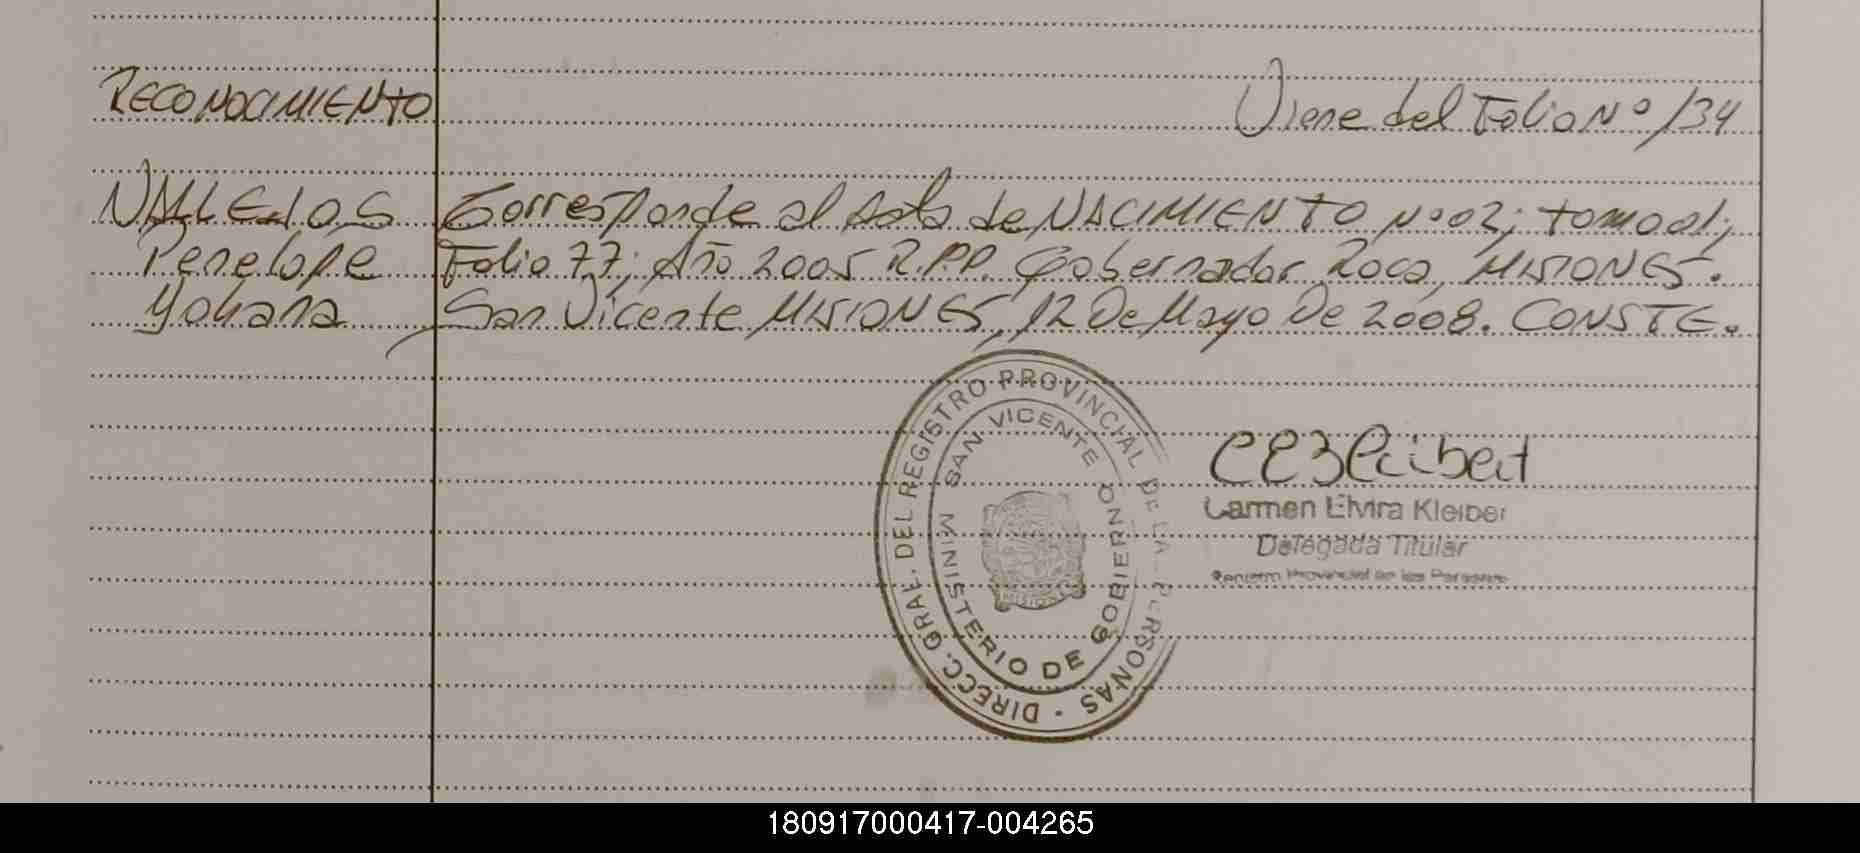 RECONOCIMIENTO
Viene del Folio Nº 134
Corresponde al Acta de NACIMIENTO Nº 02; tomo 01;
Penelope Folio 77; Año 2005 R.P.P. Gobernador Roca, MISIONES.
Yohana San Vicente MISIONES, 12 De Mayo De 2008. CONSTE.
DIRECC. GRAL. DEL REGISTRO PROVINCIAL DE LAS PERSONAS
SAN VICENTE
MINISTERIO DE GOBIERNO
MISIONES
Carmen Elvira Kleiber
Delegada Titular
Registro Provincial de las Personas
180917000417-004265